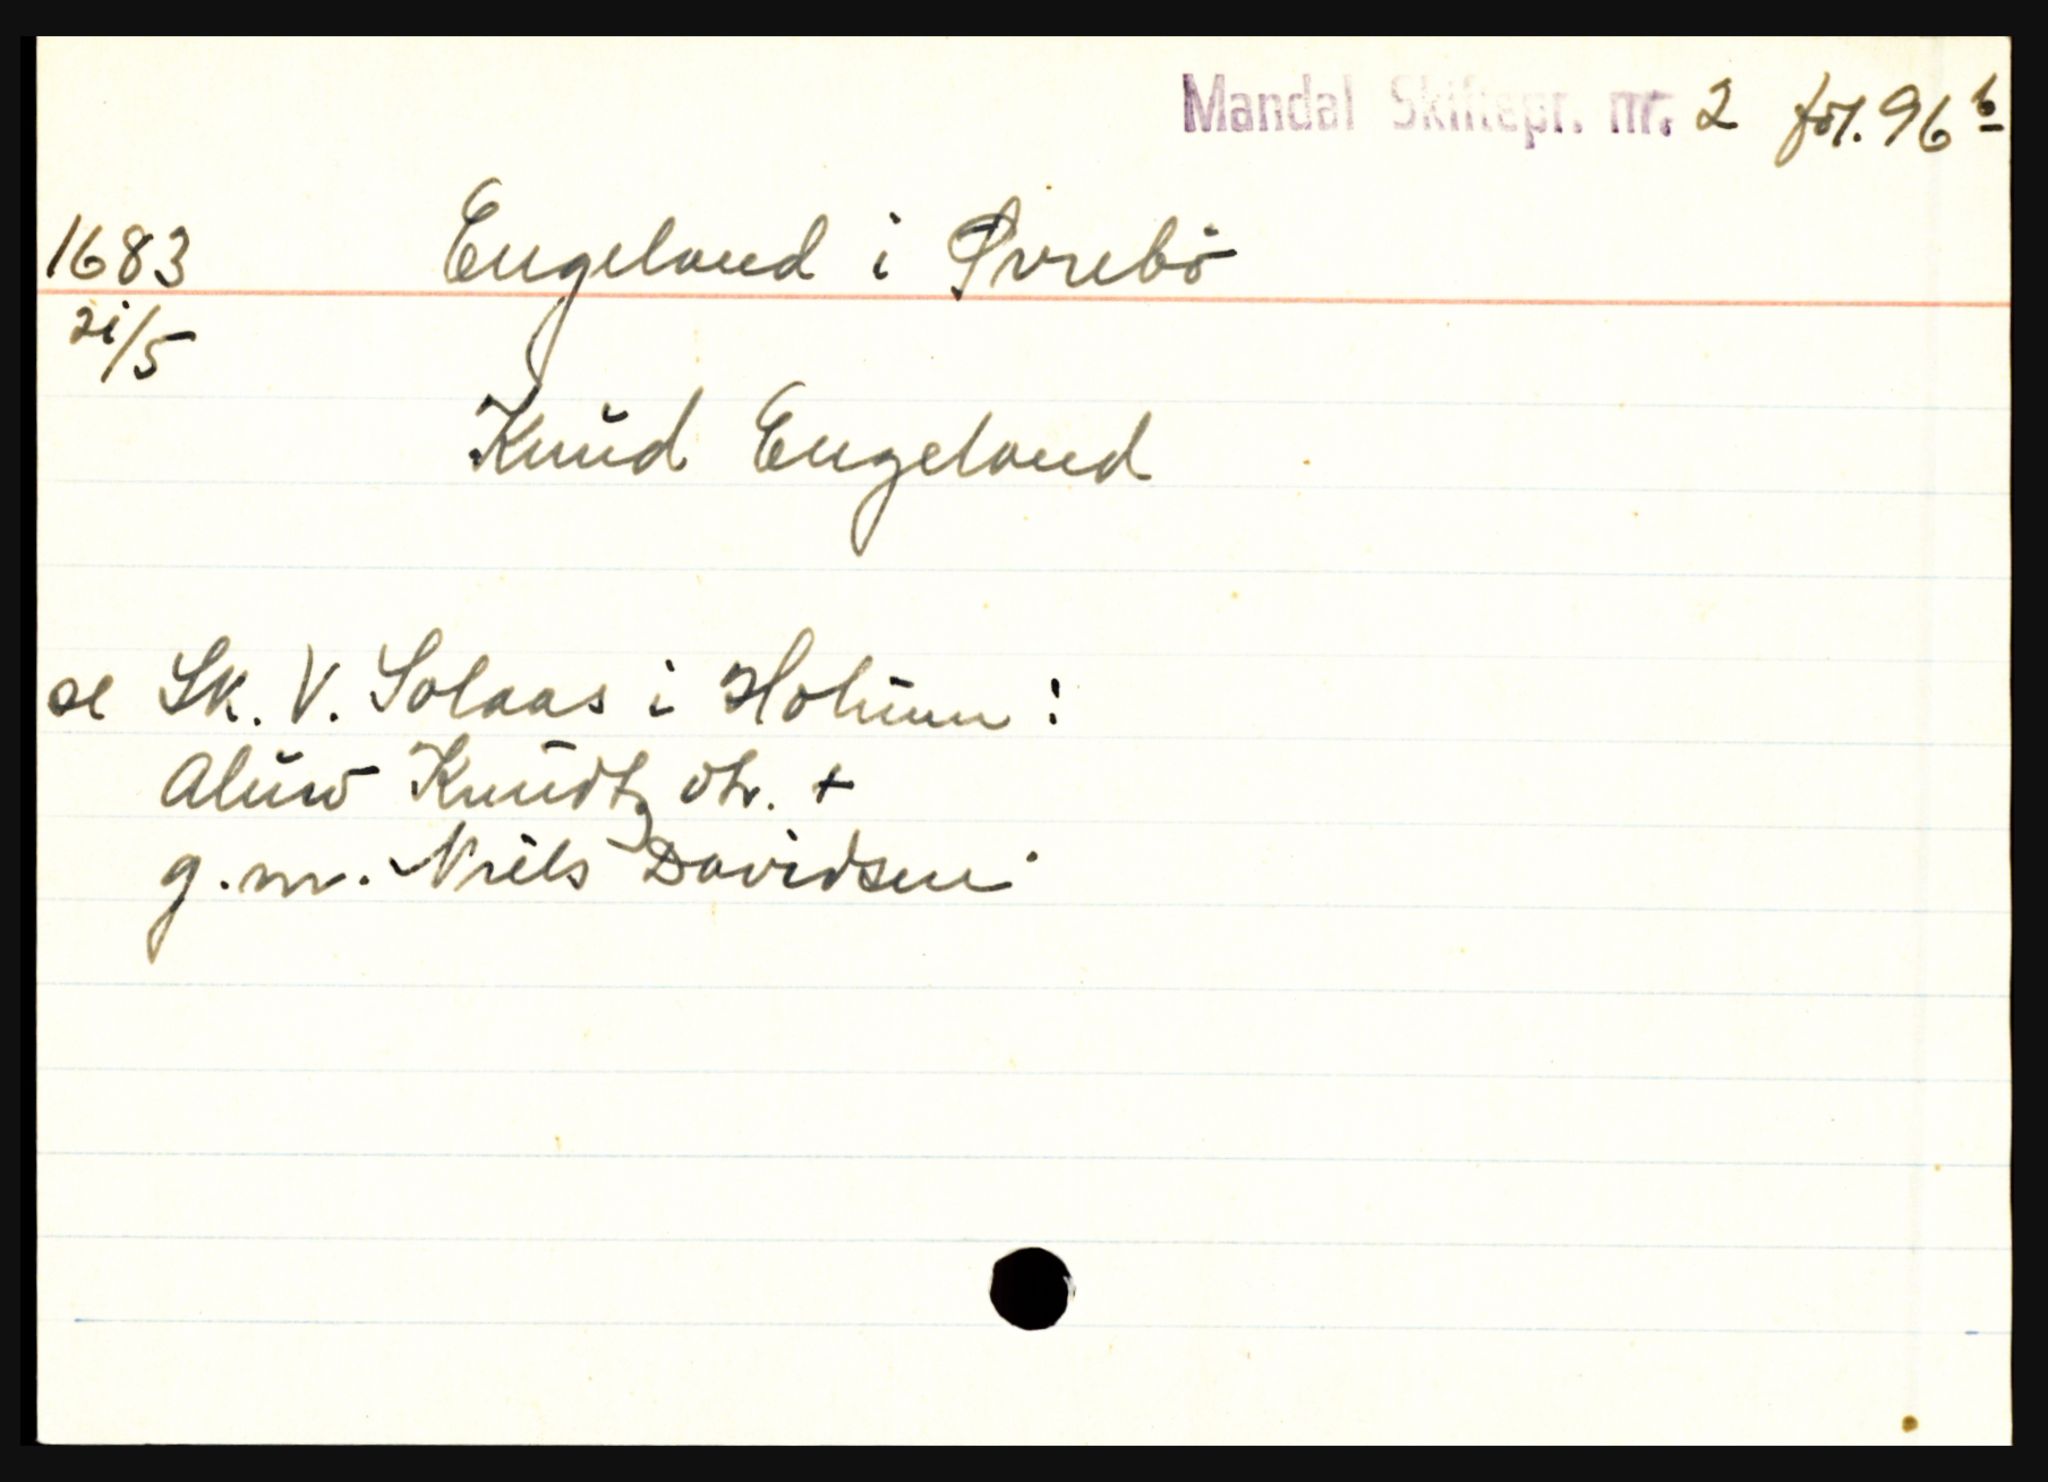 Mandal Skiftepr. nr. 2 fol. 96 b
1683 Engeland i Øvrebö
21/5
Knud Engeland
se Sk. V. Solaas i Holum:
Aluw Knudtz dtr. +
g.m. Niels Davidsen.